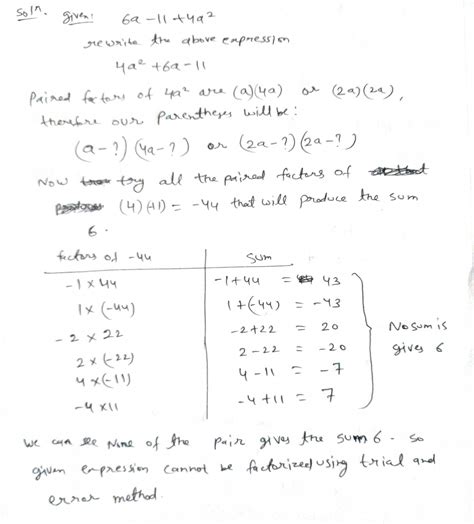 Soln. given: 6a - 11 + 4a²
rewrite the above expression
4a² + 6a - 11
Paired factors of 4a² are (a)(4a) or (2a)(2a),
therefore our parentheses will be:
(a-?) (4a-?) or (2a-?) (2a-?)
Now try all the paired factors of
(4)(-11) = -44 that will produce the sum
6.
factors of -44 sum
-1 × 44 -1+44 = 43
1 × (-44) 1+(-44) = -43
-2 × 22 -2+22 = 20
2 × (-22) 2-22 = -20
4 × (-11) 4-11 = -7
-4 × 11 -4+11 = 7
No sum is
gives 6
We can see None of the pair gives the sum 6. So
given expression cannot be factorized using trial and
error method.